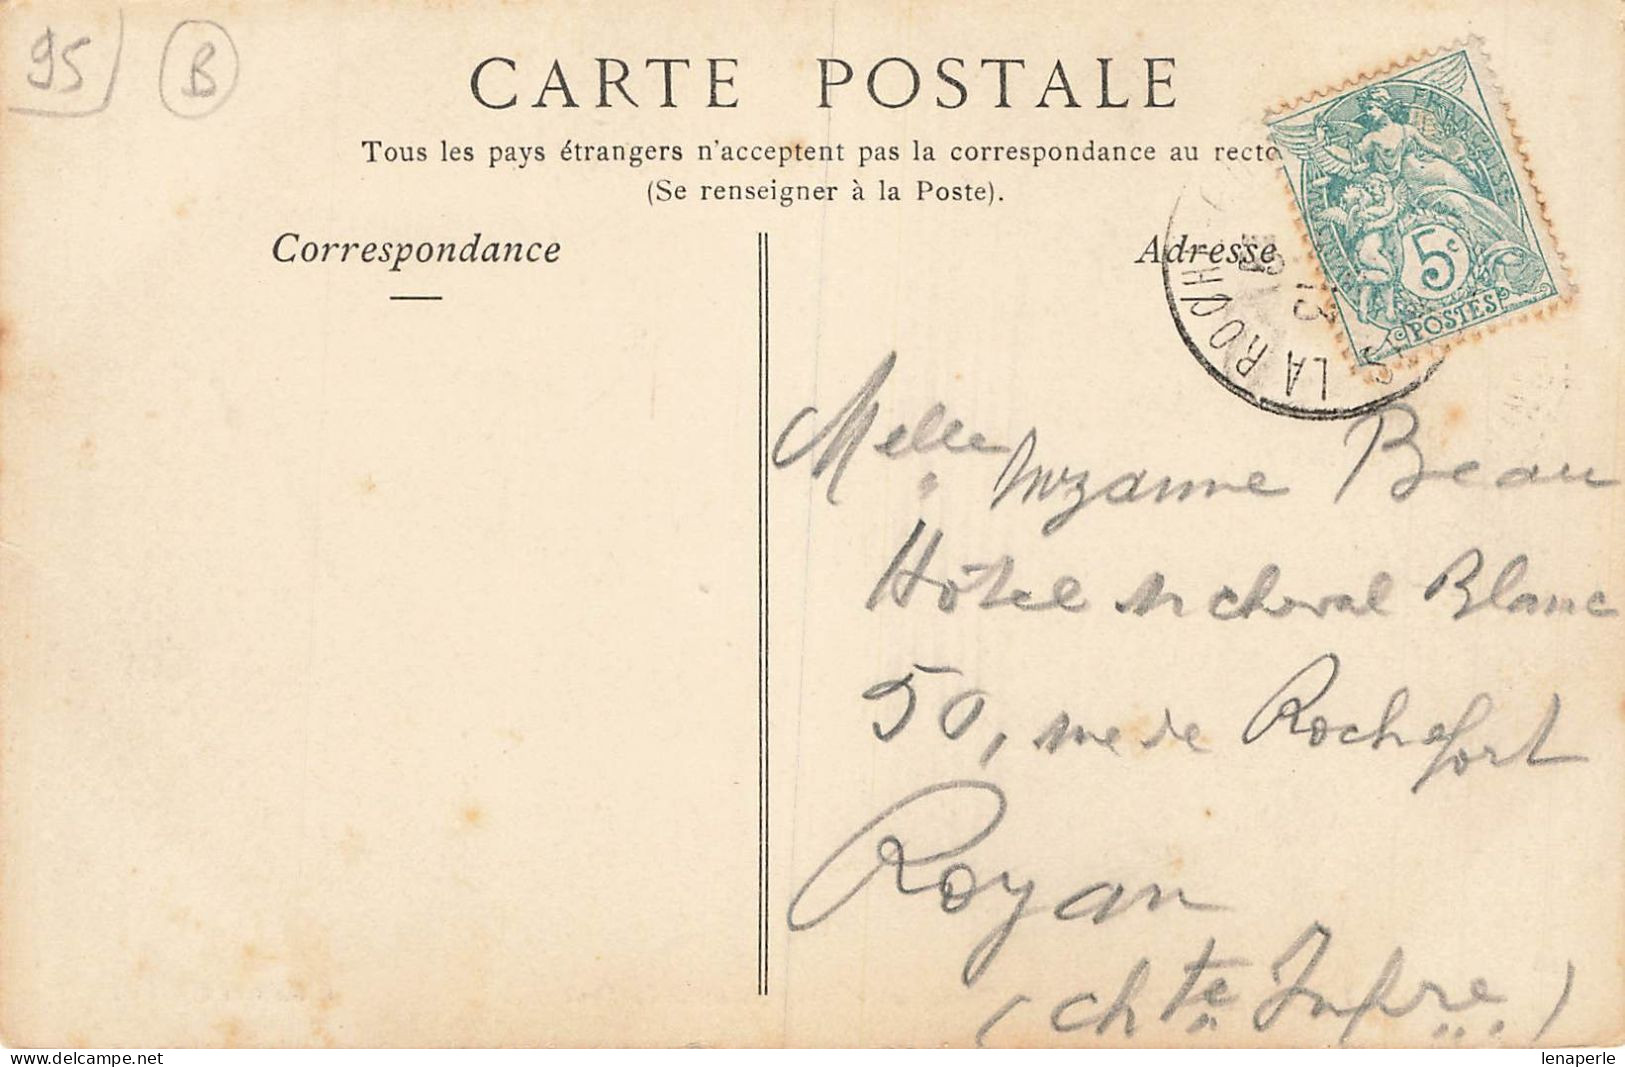 95 B
CARTE POSTALE
Tous les pays étrangers n'acceptent pas la correspondance au recto
(Se renseigner à la Poste).
Correspondance
Adresse
LA ROCH
5c
POSTES
Melle Suzanne Beau
Hôtel du cheval Blanc
50, rue de Rochefort
Royan
(chte Infre)
lenaperle